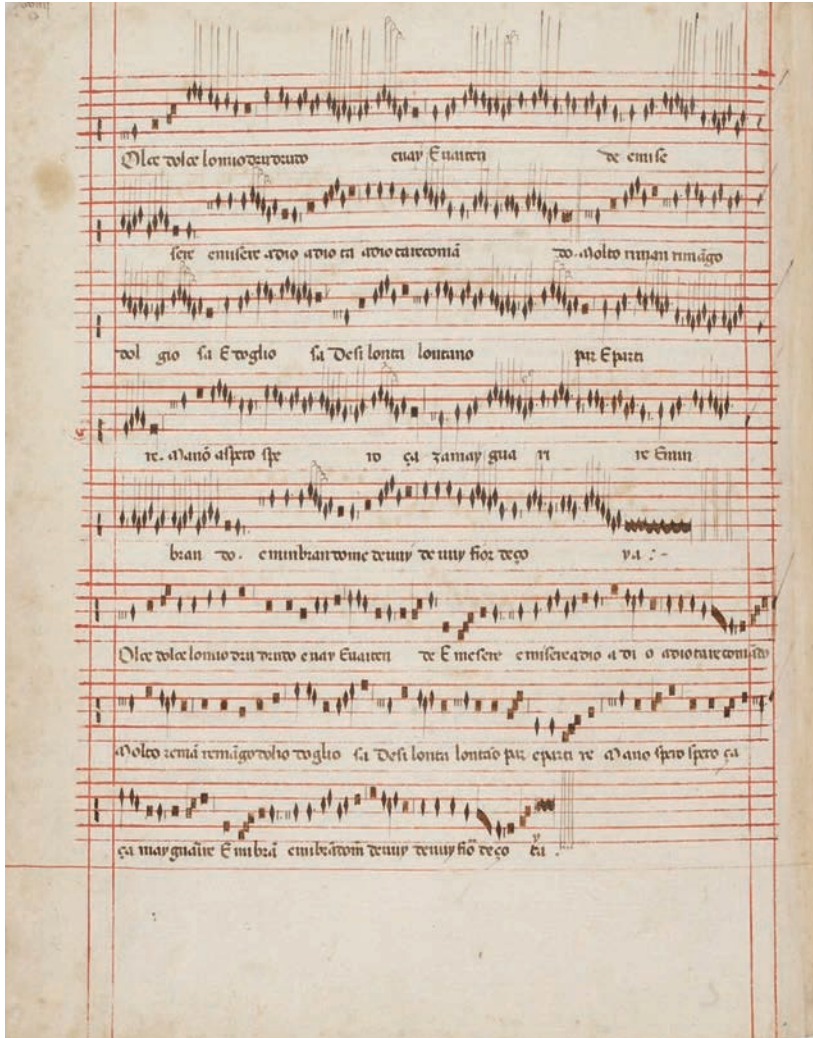 Olce dolce lo mio dru druto euay Euaiten de emise
sere emisere adio adio ta adio tarecomā do. Molto riman rimāgo
dol gio sa E doglio sa Desi lonta lontano par Eparti
re. Manō aspeto spe ro ça zamay gua ri re Emin
bran do. eminbrandome de uuy de uuy fior de ço ya :-
Olce dolce lo mio dru druto e uay Euaiten de E mesere emisere adio a di o adio tarecomādo
Molto remā remāgo dolio doglio sa Desi lonta lontāo par eparti re Mano spero spero ça
ça may guarire Eminbrā eminbrādom de uuy de uuy fio de ço ya .